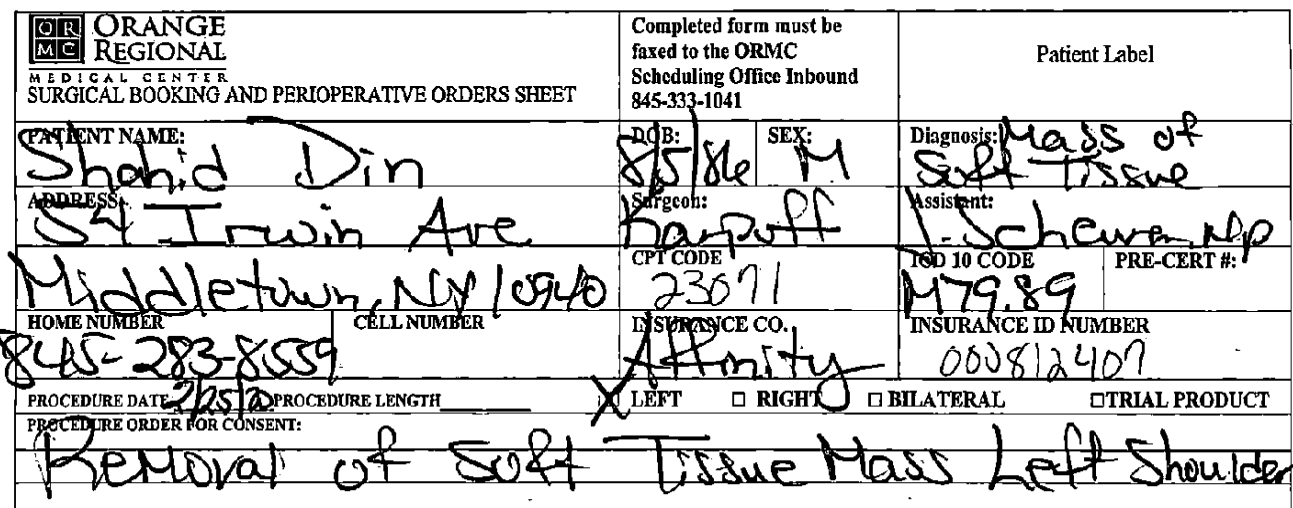 OR MC ORANGE REGIONAL
MEDICAL CENTER
SURGICAL BOOKING AND PERIOPERATIVE ORDERS SHEET
Completed form must be
faxed to the ORMC
Scheduling Office Inbound
845-333-1041
Patient Label
PATIENT NAME: Shahid Din
DOB: 8/5/86
SEX: M
Diagnosis: Mass of
Soft Tissue
ADDRESS: 54 Irwin Ave.
Surgeon: Karpoff
Assistant: J. Scheuren, Np
Middletown, NY 10940
CPT CODE 23071
ICD 10 CODE M79.89
PRE-CERT #:
HOME NUMBER 845-283-8559
CELL NUMBER
INSURANCE CO. Affinity
INSURANCE ID NUMBER 000812407
PROCEDURE DATE 2/25/20 PROCEDURE LENGTH
X LEFT □ RIGHT □ BILATERAL □ TRIAL PRODUCT
PROCEDURE ORDER FOR CONSENT:
Removal of Soft Tissue Mass Left Shoulder